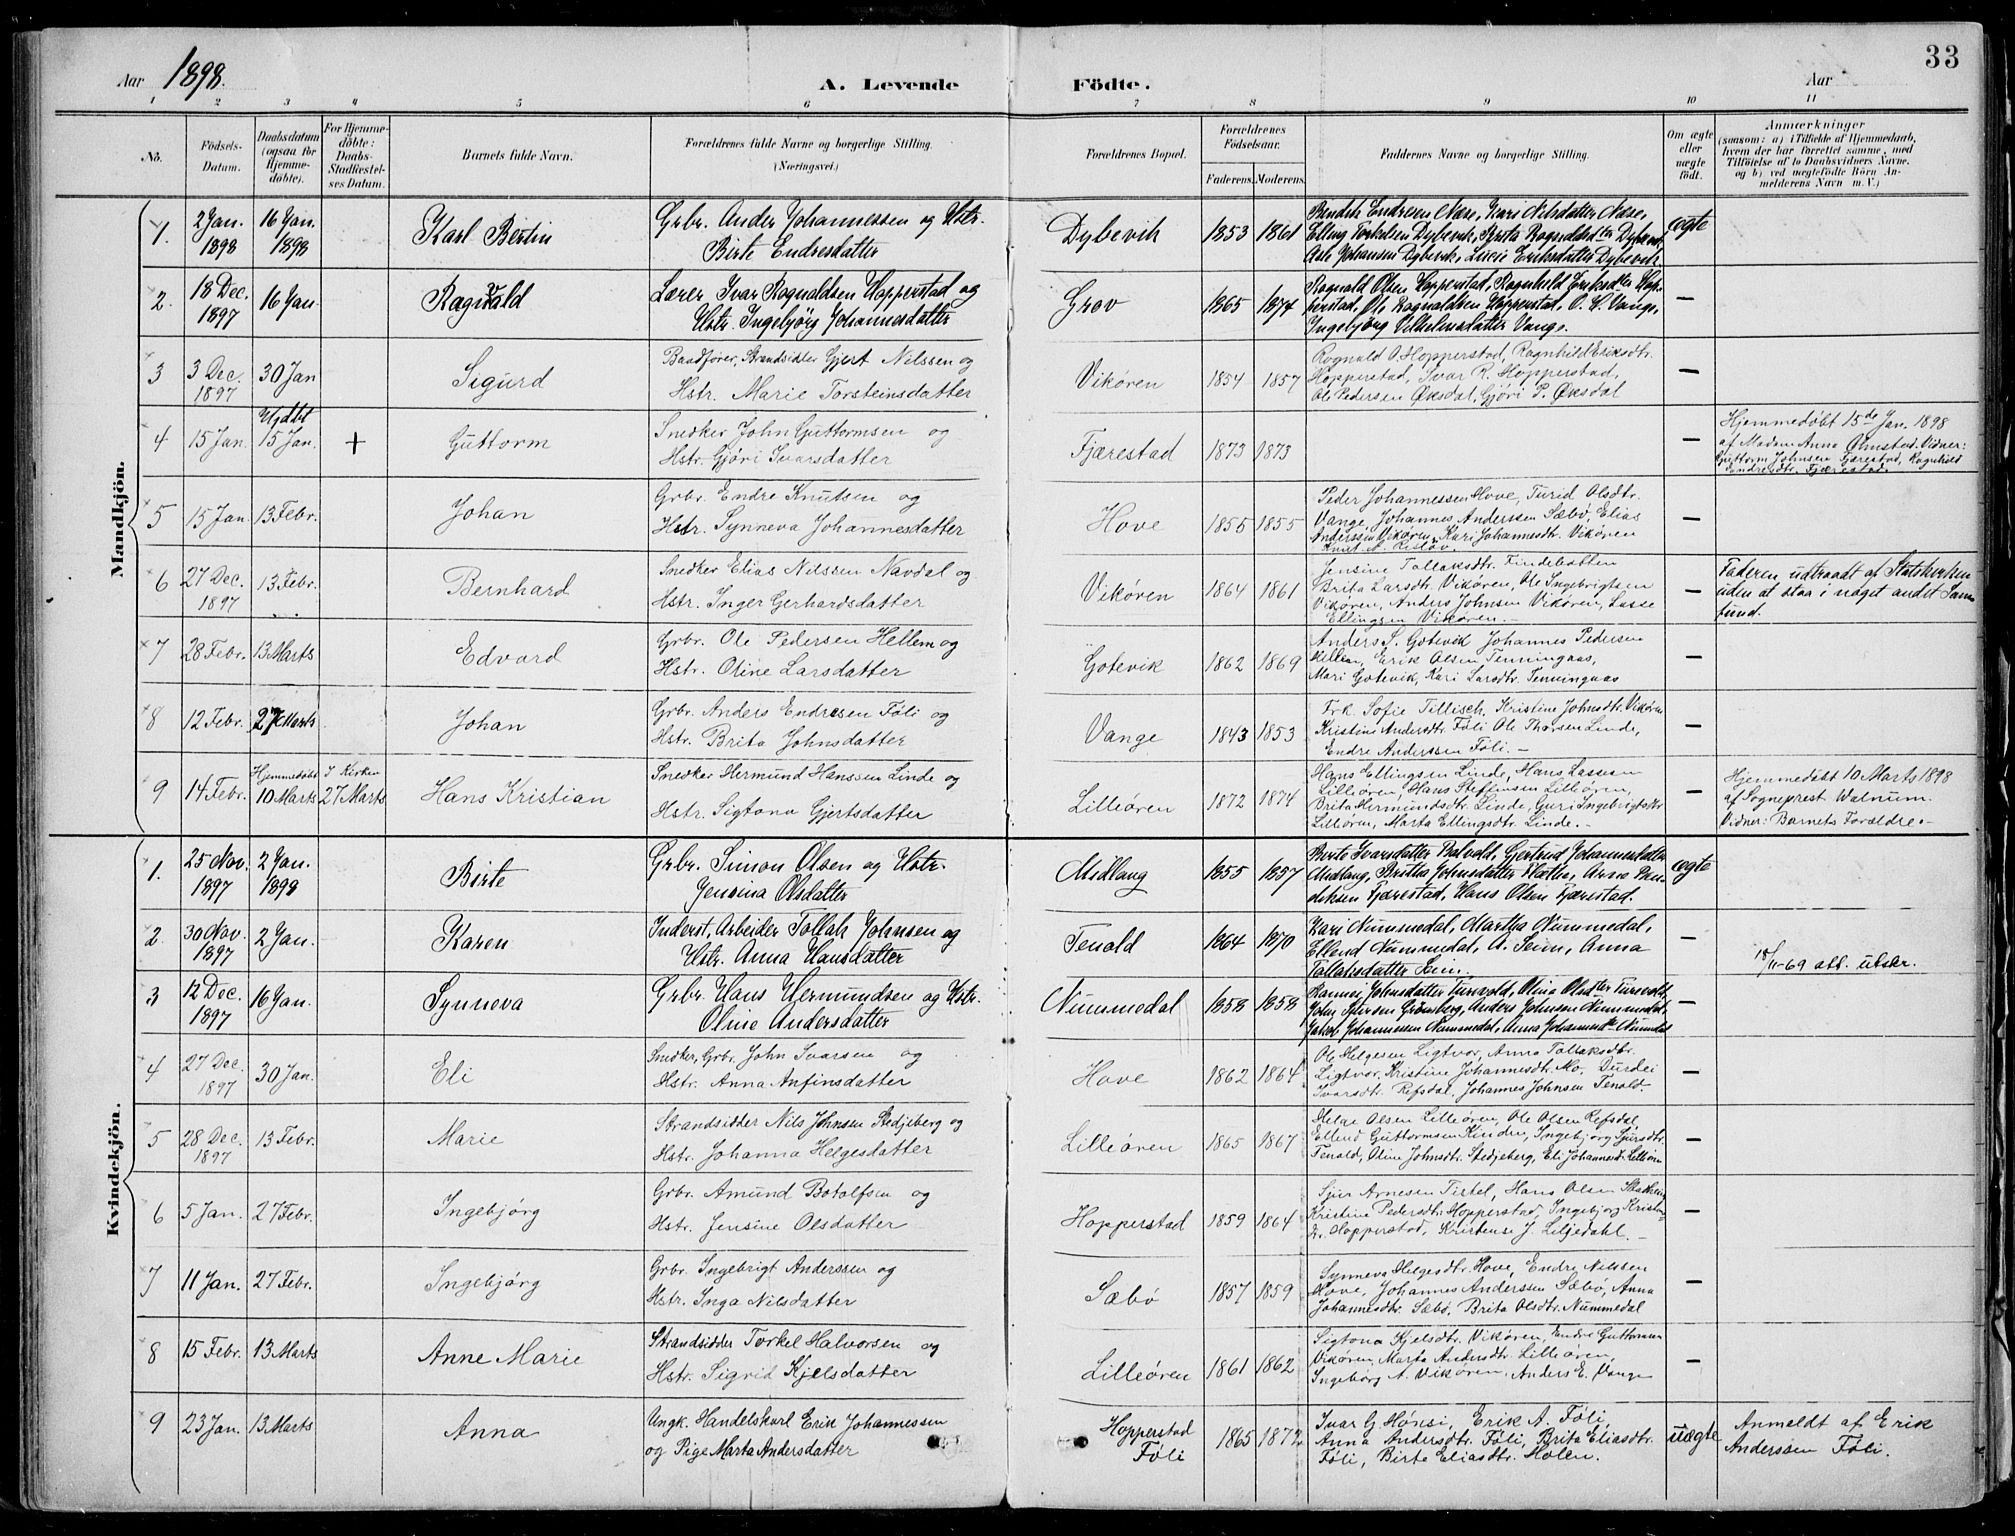 33
Aar 1898.
A. Levende Födte.
Aar
1 2 3 4 5 6 7 8 9 10 11
No.
Födsels-Datum.
Daabsdatum (ogsaa for Hjemme-döbte).
For Hjemme-döbte: Daabs-Stadfæstel-ses Datum.
Barnets fulde Navn.
Forældrenes fulde Navne og borgerlige Stilling. (Næringsvei.)
Forældrenes Bopæl.
Forældrenes Födselsaar.
Faderens. Moderens.
Faddernes Navne og borgerlige Stilling.
Om ægte eller uægte födt.
Anmærkninger
(saasom: a) i Tilfælde af Hjemmedaab,
hvem der har forrettet samme, med
Tilföielse af to Daabsvidners Navne.
og b) ved uægtefödte Börn An-
melderens Navn m. V.)
Mandkjön.
1. 2 Jan. 1898 16 Jan. 1898 Karl Bertin
Grbr. Ander Johannessen og Hstr.
Birte Endresdatter
Dybevik 1853 1861
Bendik Endresen Næse, Kari Nilsdatter Næse,
Elling Torkelsen Dybevik, Brita Ragnildsdtr Dybevik,
Asle Johansen Dybevik, Lucie Eriksdatter Dybevik
ægte
2. 18 Dec. 1897 16 Jan Ragnvald
Lærer Ivar Rognaldsen Hopperstad og
Hstr. Ingebjörg Johannesdatter
Grov 1865 1874
Rognald Olsen Hopperstad, Ragnhild Eriksdtr Hop-
perstad, Ole Rognaldsen Hopperstad, O. H. Vange,
Ingebjörg Vilhelmsdatter Vange.
—
3 3 Dec. 1897 30 Jan Sigurd
Baadfører, Strandsidder Gjert Nilssen og
Hstr. Marie Torsteinsdatter
Vikøren 1854 1857
Rognald O. Hopperstad, Ragnhild Eriksdtr.
Hopperstad, Ivar R. Hopperstad,
Ole Pedersen Øksdal, Gjöri P. Øksdal
—
4 15 Jan. Hjdbt 15 Jan. + Guttorm
Snedker John Guttormsen og
Hstr. Gjöri Ivarsdatter
Fjærestad 1873 1873
—
Hjemmedøbt 15de Jan. 1898
af Madam Anna Ølmstad. Vidner:
Guttorm Johnsen Fjærestad, Ragnhild
Endresdtr. Fjærestad
5 15 Jan 13 Febr. Johan
Grbr. Endre Knutsen og
Hstr. Synneva Johannesdatter
Hove 1855 1855
Peder Johannessen Hove, Turid Olsdtr.
Vange, Johannes Anderssen Sæbø, Elias
Anderssen Vikøren, Kari Johannesdtr. Vikøren
—
6 27 Dec. 1897 13 Febr. Bernhard
Snedker Elias Nilssen Navdal og
Hstr. Inger Gerhardsdatter
Vikøren 1864 1861
Jensine Tollaksdtr. Findebotten
Brita Larsdtr. Vikøren, Ole Ingebrigtsen
Vikøren, Anders Johnsen Vikøren, Lasse
Ellingsen Vikøren.—
—
Faderen udtraadt af Statskirken
uden at staa i noget andet Sam-
fund.
7 28 Febr. 13 Marts Edvard
Grbr. Ole Pedersen Hellem og
Hstr. Oline Larsdatter
Gotevik 1862 1869
Anders S. Gotevik Johannes Pedersen
Hellem, Erik Olsen Tenningaas,
Mari Gotevik, Kari Larsdtr. Tenningaas
—
8 12 Febr. 27 Marts Johan
Grbr. Anders Endresen Føli og
Hstr. Brita Johnsdatter
Vange 1843 1853
Frk. Sofie Tillisch, Kristine Johnsdtr. Vikøren
Kristine Andersdtr. Føli Ole Thorsen Linde,
Endre Anderssen Føli.—
—
9 14 Febr. Hjemmedøbt 10 Marts I Kirken 27 Marts Hans Kristian
Snedker Hermund Hanssen Linde og
Hstr. Sigtona Gjertsdatter
Lilleøren 1872 1874
Hans Ellingsen Linde, Hans Lassesen
Lilleøren, Hans Steffensen Lilleøren,
Brita Hermundsdtr. Linde, Guri Ingebrigtsdtr
Lilleøren, Marta Ellingsdtr. Linde.—
—
Hjemmedøbt 10 Marts 1898
af Sogneprest Walnum.
Vidner: Barnets Forældre.—
Kvindekjön.
1. 25 Nov. 1897 2 Jan. 1898 Birte
Grbr. Simon Olsen og Hstr.
Jensina Olsdatter
Midlang 1855 1857
Berte Ivarsdatter Gertrud Johannesdatter
Midlang, Brithe Johnsdatter Arne
Fjærestad, Hans Olsen Fjærestad.
ægte
2. 30 Nov. 1897 2 Jan. Karen
Inderst, Arbeider Tollak Johnsen og
Hstr. Anna Hansdatter
Tenold 1864 1870
Kari Nummedal, Martha Nummedal,
Ellend Nummedal, A. Seim, Anna
Tollaksdatter Seim.
—
18/11-69 att. utskr.
3 12 Dec. 1897 16 Jan. Synneva
Grbr. Hans Hermundsen og Hstr.
Oline Andersdatter
Nummedal 1858 1858
Rannei Johnsdatter Turvold, Olina Olsdter Turvold,
John Grönsberg, Anders Johnsen Nummedal,
Jakob Johannessen Nummedal, Anna Nummedal
—
4 27 Dec. 1897 30 Jan. Eli
Snedker, Grbr. John Ivarsen og
Hstr. Anna Anfinsdatter
Hove 1862 1864
Ole Helgesen Ligtvor, Anna Tollaksdtr.
Ligtvor, Kristine Johannesdtr. Mo, Durdei
Ivarsdtr. Refsdal, Johannes Johnsen Tenold.
—
5 28 Dec. 1897 13 Febr. Marie
Strandsidder Nils Johnsen Stedjeberg og
Hstr. Johanna Helgesdatter
Lilleøren 1865 1867
Helge Olsen Lilleøren, Ole Olsen Refsdal,
Ellend Guttormsen Kinden, Ingebjørg Sjursdtr.
Tenold, Oline Johnsdtr. Stedjeberg, Eli Johannesdtr. Lilleøren
—
6 5 Jan. 27 Febr. Ingebjörg
Grbr. Amund Botolfsen og
Hstr. Jensine Olsdatter
Hopperstad 1859 1864
Sjur Arnesen Tistel, Hans Olsen
Kristine Pedersdtr. Hopperstad, Ingebjørg
Hopperstad, Kristense J. Liljedahl.—
—
7 11 Jan. 27 Febr. Ingebjörg
Grbr. Ingebrigt Anderssen og
Hstr. Inga Nilsdatter
Sæbø 1857 1859
Synneva Helgesdtr. Hove, Endre Nilssen
Hove, Johannes Anderssen Sæbø, Anna
Johannesdtr. Sæbø, Brita Olsdtr. Nummedal
—
8 15 Febr. 13 Marts Anne Marie
Strandsidder Torkel Halvorsen og
Hstr. Sigrid Kjelsdatter
Lilleøren 1861 1862
Sigtona Kjelsdtr. Vikøren, Endre Guttormsen
Vikøren, Marta Andersdtr. Lilleøren,
Ingeborg A. Vikøren, Anders E. Vange
—
9 23 Jan. 13 Marts Anna
Ungk. Handelskarl Erik Johannessen
og Pige Marta Andersdatter
Hopperstad
Føli
1865 1872
Ivar G. Hønsi, Erik A. Føli,
Anna Andersdtr. Føli, Brita Eliasdtr.
Føli, Birte Eliasdtr. Holen.
uægte
Anmeldt af Erik
Anderssen Føli.